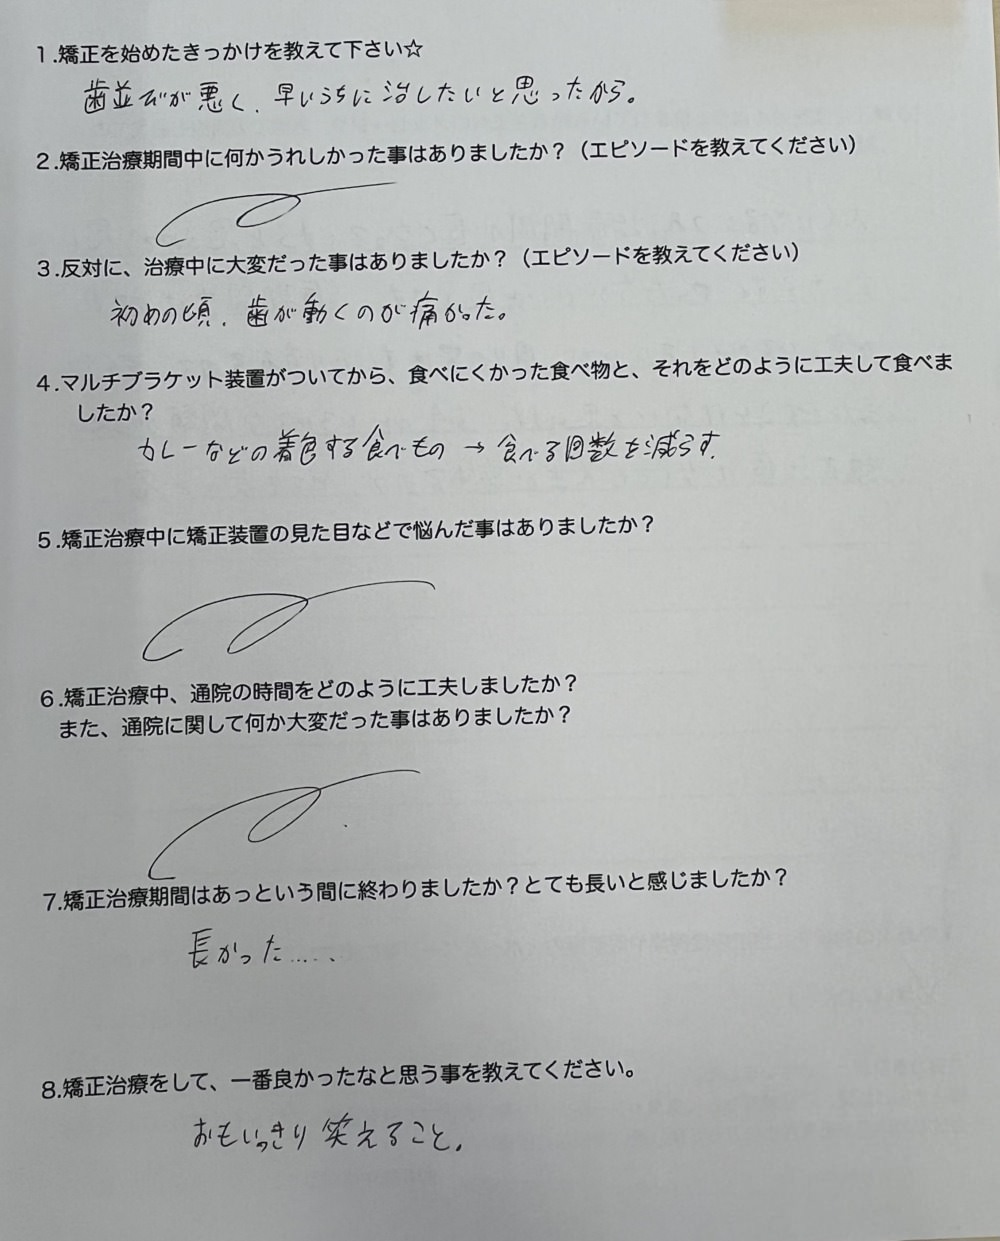 1.矯正を始めたきっかけを教えて下さい☆
歯並びが悪く、早いうちに治したいと思ったから。
2.矯正治療期間中に何かうれしかった事はありましたか？（エピソードを教えてください）
3.反対に、治療中に大変だった事はありましたか？（エピソードを教えてください）
初めの頃、歯が動くのが痛かった。
4.マルチブラケット装置がついてから、食べにくかった食べ物と、それをどのように工夫して食べま
したか？
カレーなどの着色する食べもの → 食べる回数を減らす.
5.矯正治療中に矯正装置の見た目などで悩んだ事はありましたか？
6.矯正治療中、通院の時間をどのように工夫しましたか？
また、通院に関して何か大変だった事はありましたか？
7.矯正治療期間はあっという間に終わりましたか？とても長いと感じましたか？
長かった……、
8.矯正治療をして、一番良かったなと思う事を教えてください。
おもいっきり笑えること。